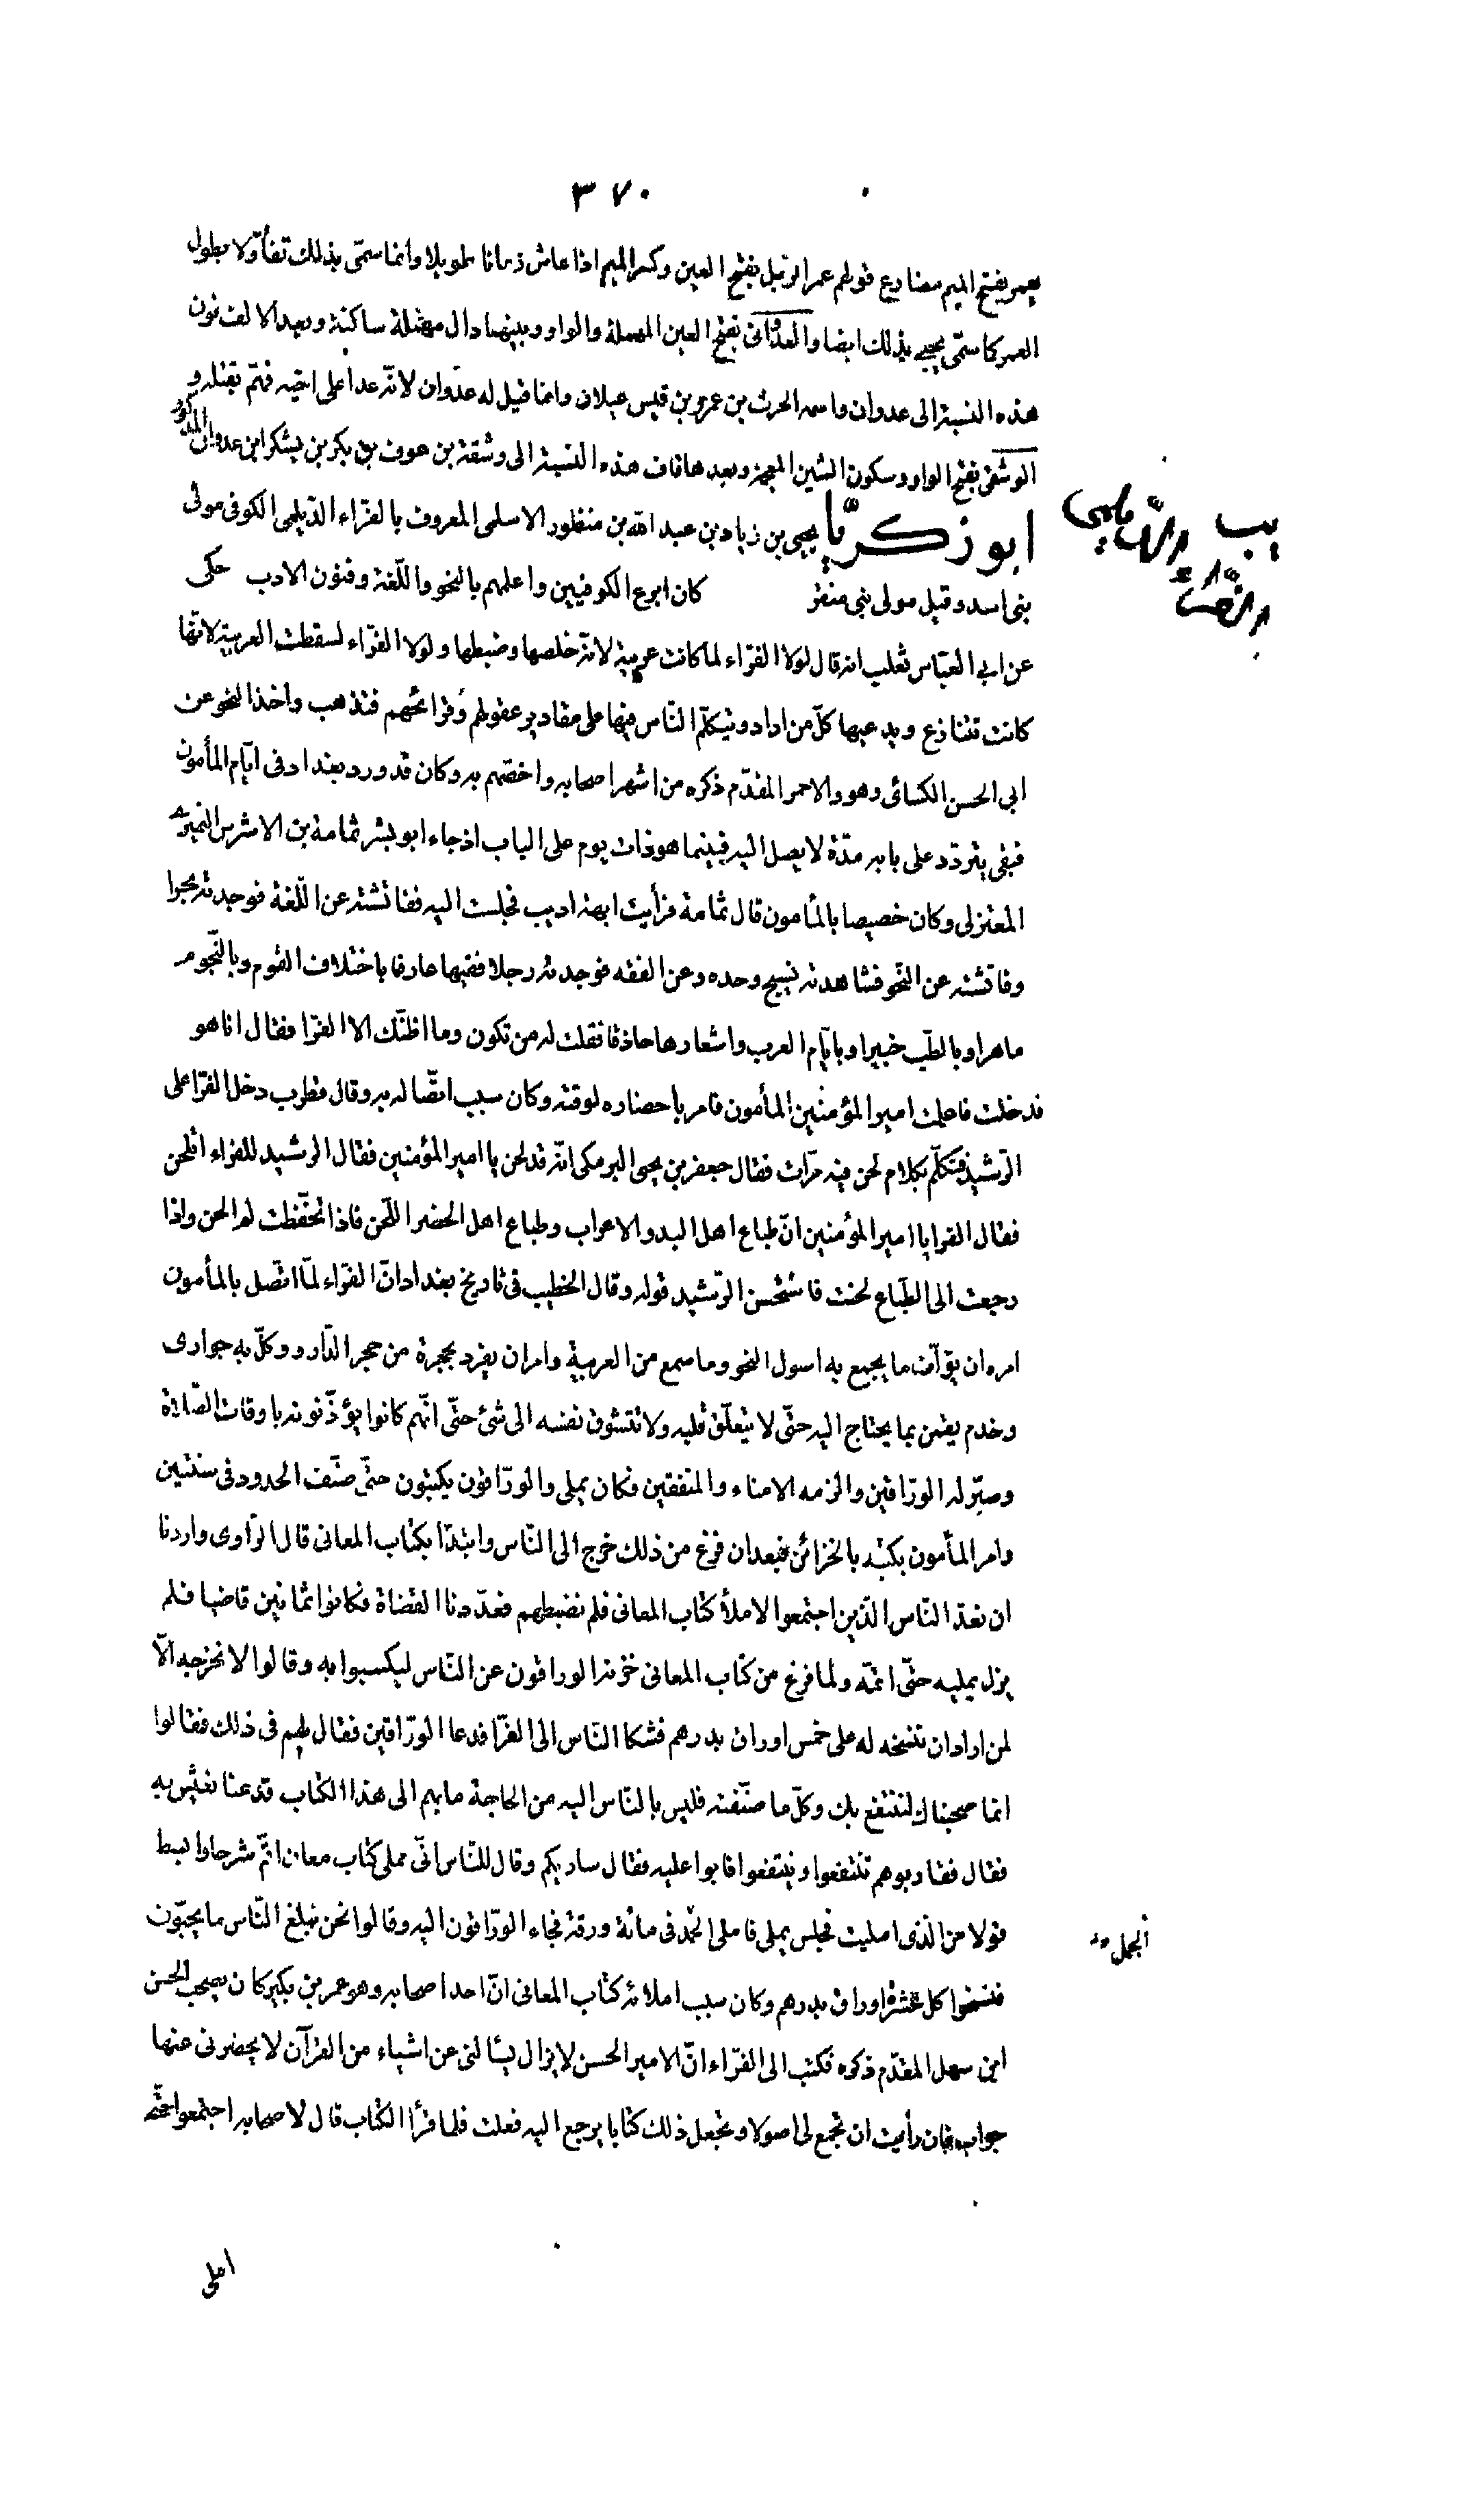 ٣٧٠
يعمر بفتح الميم مضارع قولهم عمر الرجل بفتح العين وكسر الميم اذا عاش زمانا طويلا وانما سمّى بذلك تفأّولا بطول
العمر كما سمّى يحيى بذلك ايضا والعدوانى بفتح العين المهملة والواو وبينهما دال مهملة ساكنة وبعد الالف نون
هذه النسبة الى عدوان واسمه الحرث بن عمرو بن قيس عيلان وانما قيل له عدوان لانّه عدا على اخيه فهمّ بقتله و
الوشقى بفتح الواو وسكون الشين المعجمة وبعدها قاف هذه النسبة الى وشقة بن عوف بن بكر بن يشكر ابن عدوان المذكور
ابو زكريّا يحيى بن زياد بن عبد الله بن منظور الاسلمى المعروف بالفرّاء الديلمى الكوفى مولى
بنى اسد وقيل مولى بنى منقر كان ابرع الكوفيين واعلمهم بالنحو واللّغة وفنون الادب حكى
عن ابى العبّاس ثعلب انه قال لولا الفرّاء لما كانت عربية لانّه خلصها وضبطها ولولا الفرّاء لسقطت العربية لانّها
كانت تتنازع ويدعيها كلّ من اراد ويتكلّم النّاس فيها على مقادير عقولهم وقرائحهم فتذهب واخذ النحو عن
ابى الحسن الكسائى وهو والاحمر المقدّم ذكره من اشهر اصحابه واخصّهم به وكان قد ورد بغداد فى ايّام المأمون
فبقى يتردّد على بابه مدّة لا يصل اليه فبينما هو ذات يوم على الباب اذ جاء ابو بشر ثمامة بن الاشرس النميرى
المعتزلى وكان خصيصا بالمأمون قال ثمامة فرأيت ابهة اديب فجلست اليه ففاتشته عن اللّغة فوجدته بحرا
وفاتشته عن النّحو فشاهدته نسيج وحده وعن الفقه فوجدته رجلا فقيها عارفا باختلاف القوم وبالنّجوم
ماهرا وبالطبّ خبيرا وبايّام العرب واشعارها حاذقا فقلت له من تكون وما اظنّك الا الفرّا فقال انا هو
فدخلت فاعلمت امير المؤمنين المأمون فامر باحضاره لوقته وكان سبب اتّصاله به وقال قطرب دخل الفرّا على
الرّشيد فتكلّم بكلام لحن فيه مرّات فقال جعفر بن يحيى البرمكى انّه قد لحن يا امير المؤمنين فقال الرشيد للفراء اتلحن
فقال الفرا يا امير المؤمنين انّ طباع اهل البدو الاعراب وطباع اهل الحضر اللّحن فاذا تحفّظت لم الحن واذا
رجعت الى الطّباع لحنت فاستحسن الرّشيد قوله وقال الخطيب فى تاريخ بغداد انّ الفرّاء لمّا اتّصل بالمأمون
امره ان يؤلّف ما يجمع به اسول النحو وما سمع من العربية وامر ان يفرد بحجرة من حجر الدّار ووكلّ به جوارى
وخدم يقمن بما يحتاج اليه حتّى لا يتعلّق قلبه ولا تتشوق نفسه الى شئ حتّى انّهم كانوا يؤذّنونه باوقات الصّلاة
وصيّر له الورّاقين والزمه الامناء والمنفقين فكان يملى والورّاقون يكتبون حتّى صنّف الحدود فى سنتين
وامر المأمون بكتبه بالخزائن فبعد ان فرغ من ذلك خرج الى النّاس وابتدأ بكتاب المعانى قال الرّاوى واردنا
ان نعدّ النّاس الّذين اجتمعوا لاملأ كتاب المعانى فلم نضبطهم فعدّدنا القضاة فكانوا ثمانين قاضيا فلم
يزل يمليه حتّى اتمّه ولما فرغ من كتاب المعانى خزنه الوراقون عن النّاس ليكسبوا به وقالوا لا نخرجه الّا
لمن اراد ان ننسخه له على خمس اوراق بدرهم فشكا النّاس الى الفرّا فدعا الورّاقين فقال لهم فى ذلك فقالوا
انما صحبناك لننتفع بك وكلّ ما صنّفته فليس بالنّاس اليه من الحاجة ما بهم الى هذا الكتاب فدعنا نعيش به
فقال فقاربوهم تنتفعوا وينتفعوا فابوا عليه فقال ساريكم وقال للنّاس انّى مملى كتاب معان اتمّ شرحا وابسط
قولا من الّذى امليت فجلس يملى فاملى الحمد فى مائة ورقة فجاء الورّاقون اليه وقالوا نحن نبلغ النّاس ما يحبّون
فنسخوا كل عشرة اوراق بدرهم وكان سبب املائه كتاب المعانى انّ احد اصحابه وهو عمر بن بكير كان يصحب الحسن
ابن سهل المقدّم ذكره فكتب الى الفرّاء انّ الامير الحسن لا يزال يسألنى عن اشياء من القرآن لا يحضرنى عنها
جواب فان رأيت ان تجمع لى اصولا وتجعل ذلك كتابا يرجع اليه فعلت فلما قرأ الكتاب قال لاصحابه اجتمعوا حتّى
املى
الفرّاء
الجمل